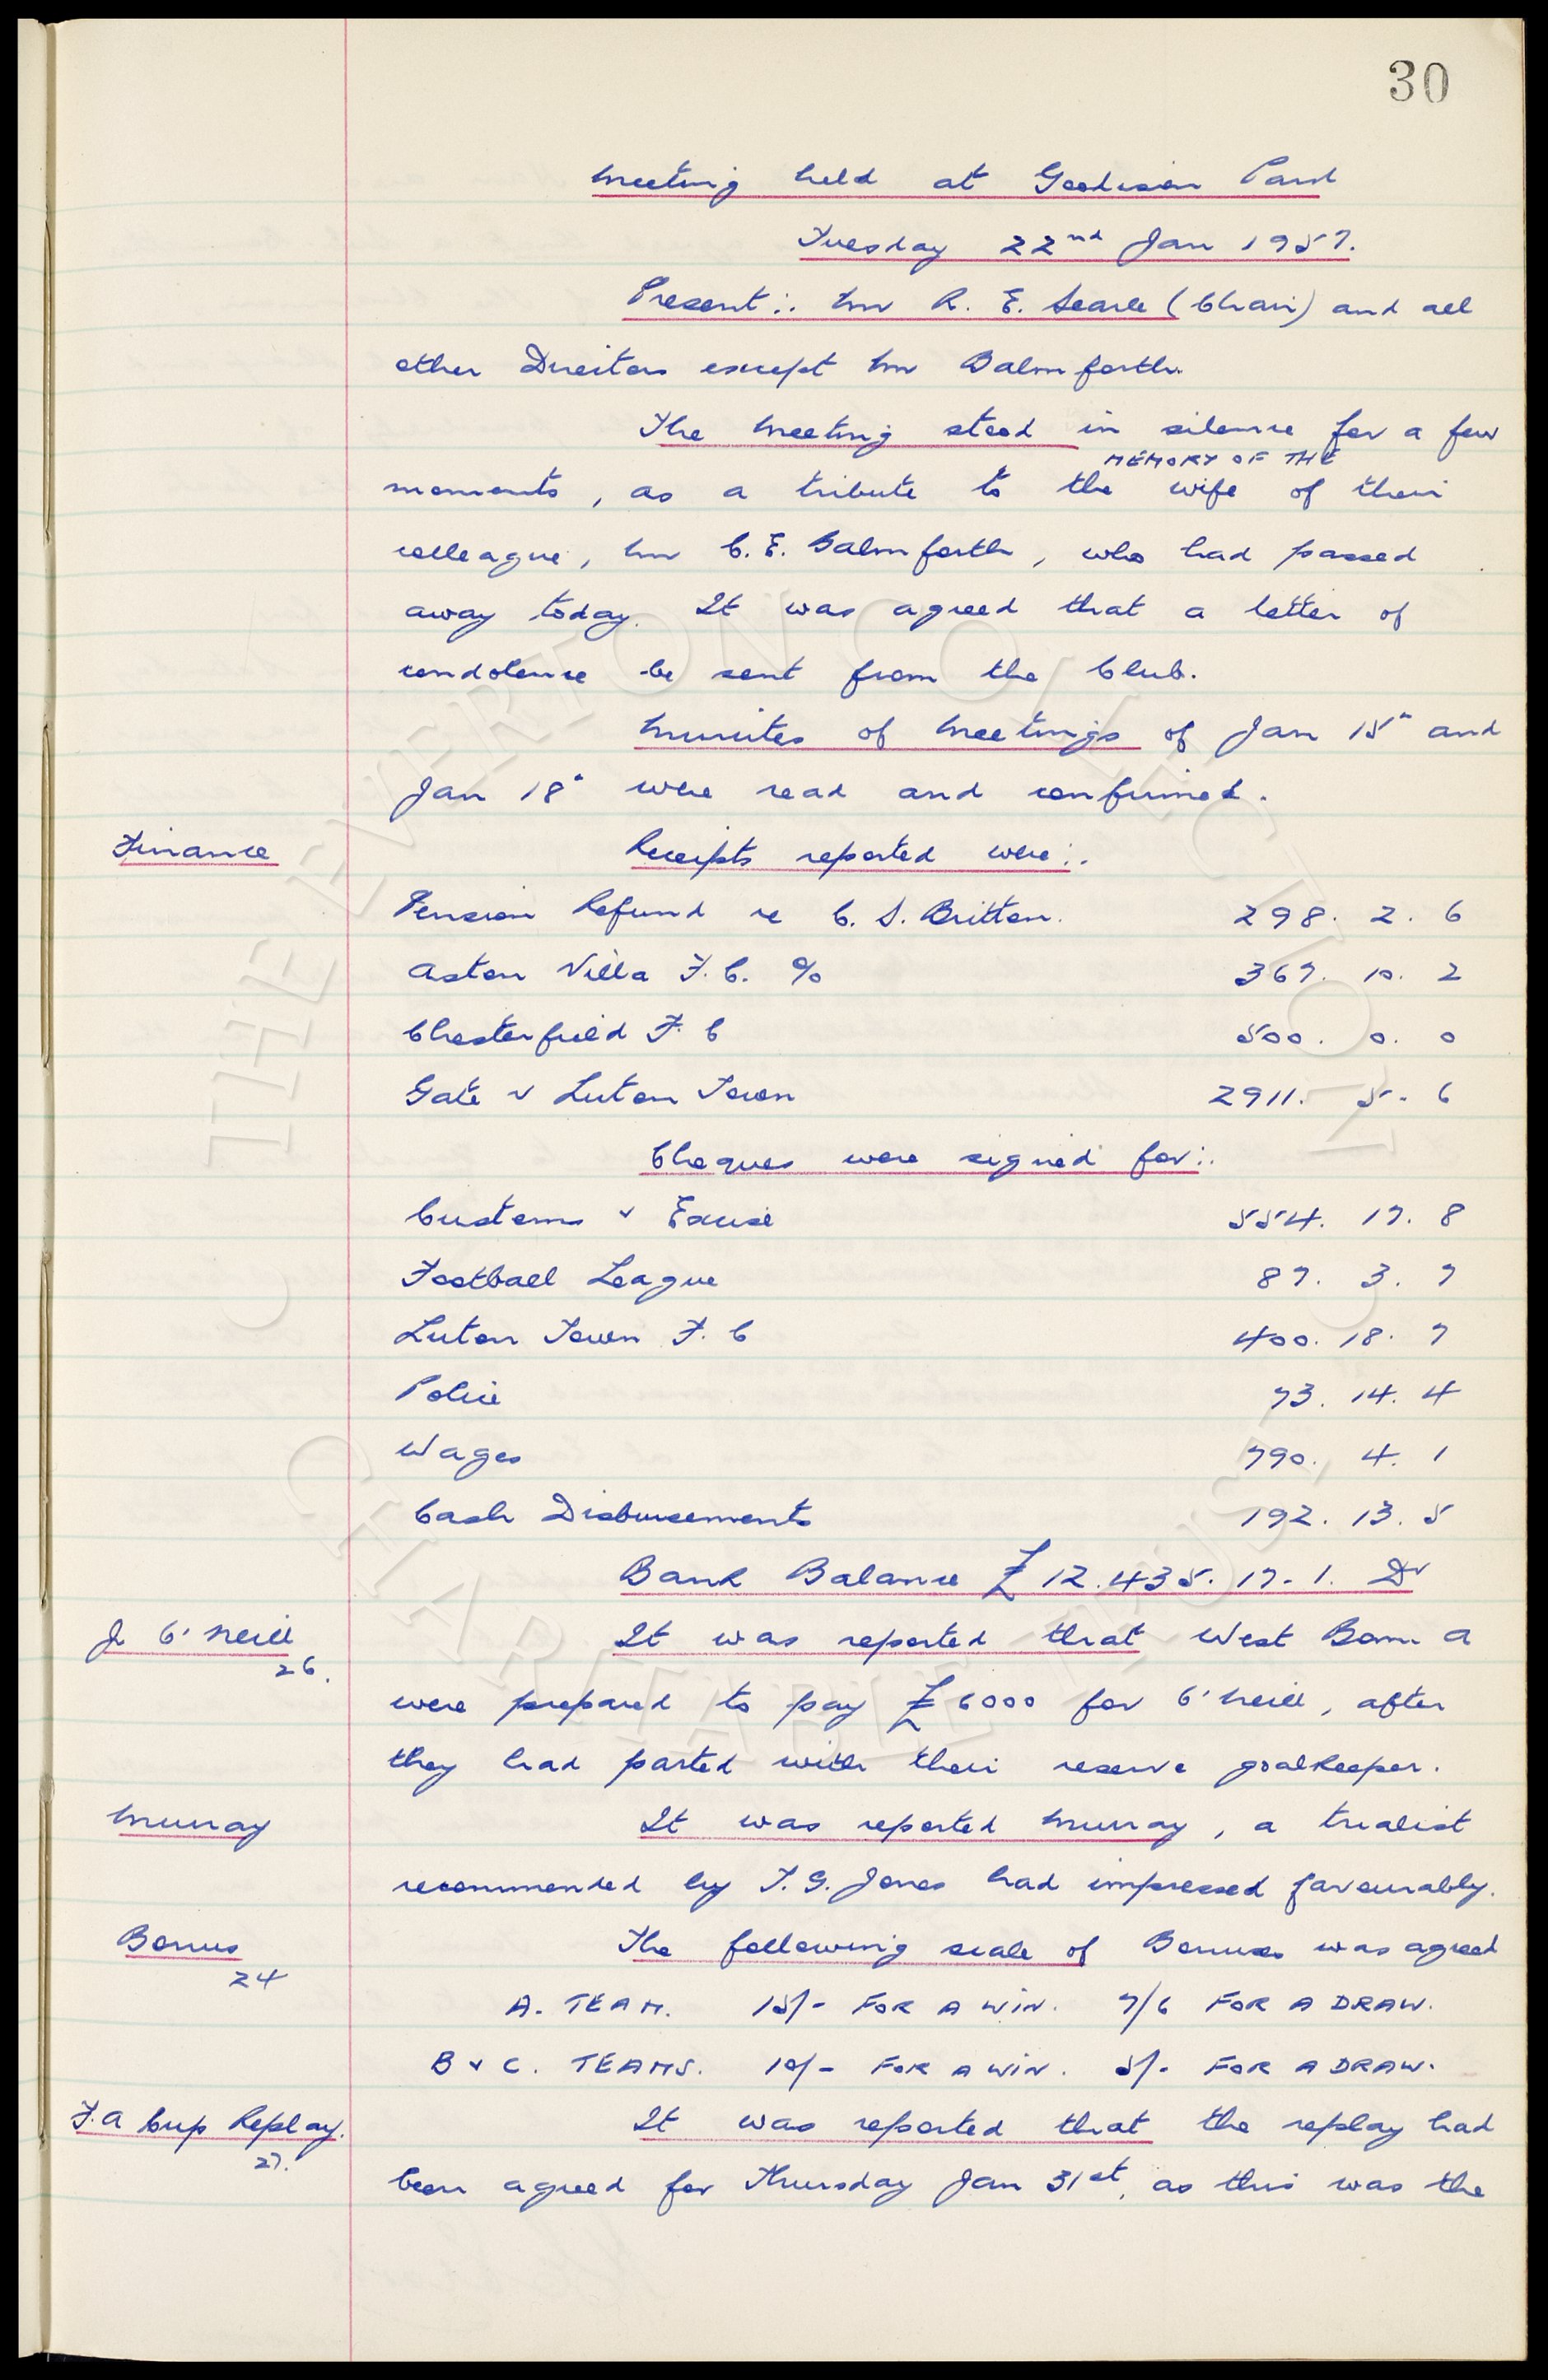 30
Meeting held at Goodison Park
Tuesday 22nd Jan 1957.
Present:. Mr R. E. Searle (Chair) and all
other Directors except Mr Balmforth.
The Meeting stood in silence for a few
MEMORY OF THE
moments, as a tribute to the wife of their
colleague, Mr C. E. Balmforth, who had passed
away today. It was agreed that a letter of
condolence be sent from the Club.
Minutes of Meetings of Jan 15" and
Jan 18" were read and confirmed.
Finance Receipts reported were:.
Pension Refund re C. S. Britton. 298. 2. 6
Aston Villa F.C. % 367. 10. 2
Chesterfield F. C 500. 0. 0
Gate v Luton Town 2911. 5. 6
Cheques were signed for:.
Customs & Excise 554. 17. 8
Football League 87. 3. 7
Luton Town F. C 400. 18. 7
Police 73. 14. 4
Wages 790. 4. 1
Cash Disbursements 192. 13. 5
Bank Balance £12.435. 17. 1. Dr
J O'Neill It was reported that West Brom A
26.
were prepared to pay £6000 for O'Neill, after
they had parted with their reserve goalkeeper.
Murray It was reported Murray, a trialist
recommended by T. G. Jones had impressed favourably.
Bonus The following scale of Bonuses was agreed
24
A. TEAM. 15/- FOR A WIN. 7/6 FOR A DRAW.
B & C. TEAMS. 10/- FOR A WIN. 5/- FOR A DRAW.
F.A Cup Replay. It was reported that the replay had
27.
been agreed for Thursday Jan 31st, as this was the
THE EVERTON COLLECTION
CHARITABLE TRUST